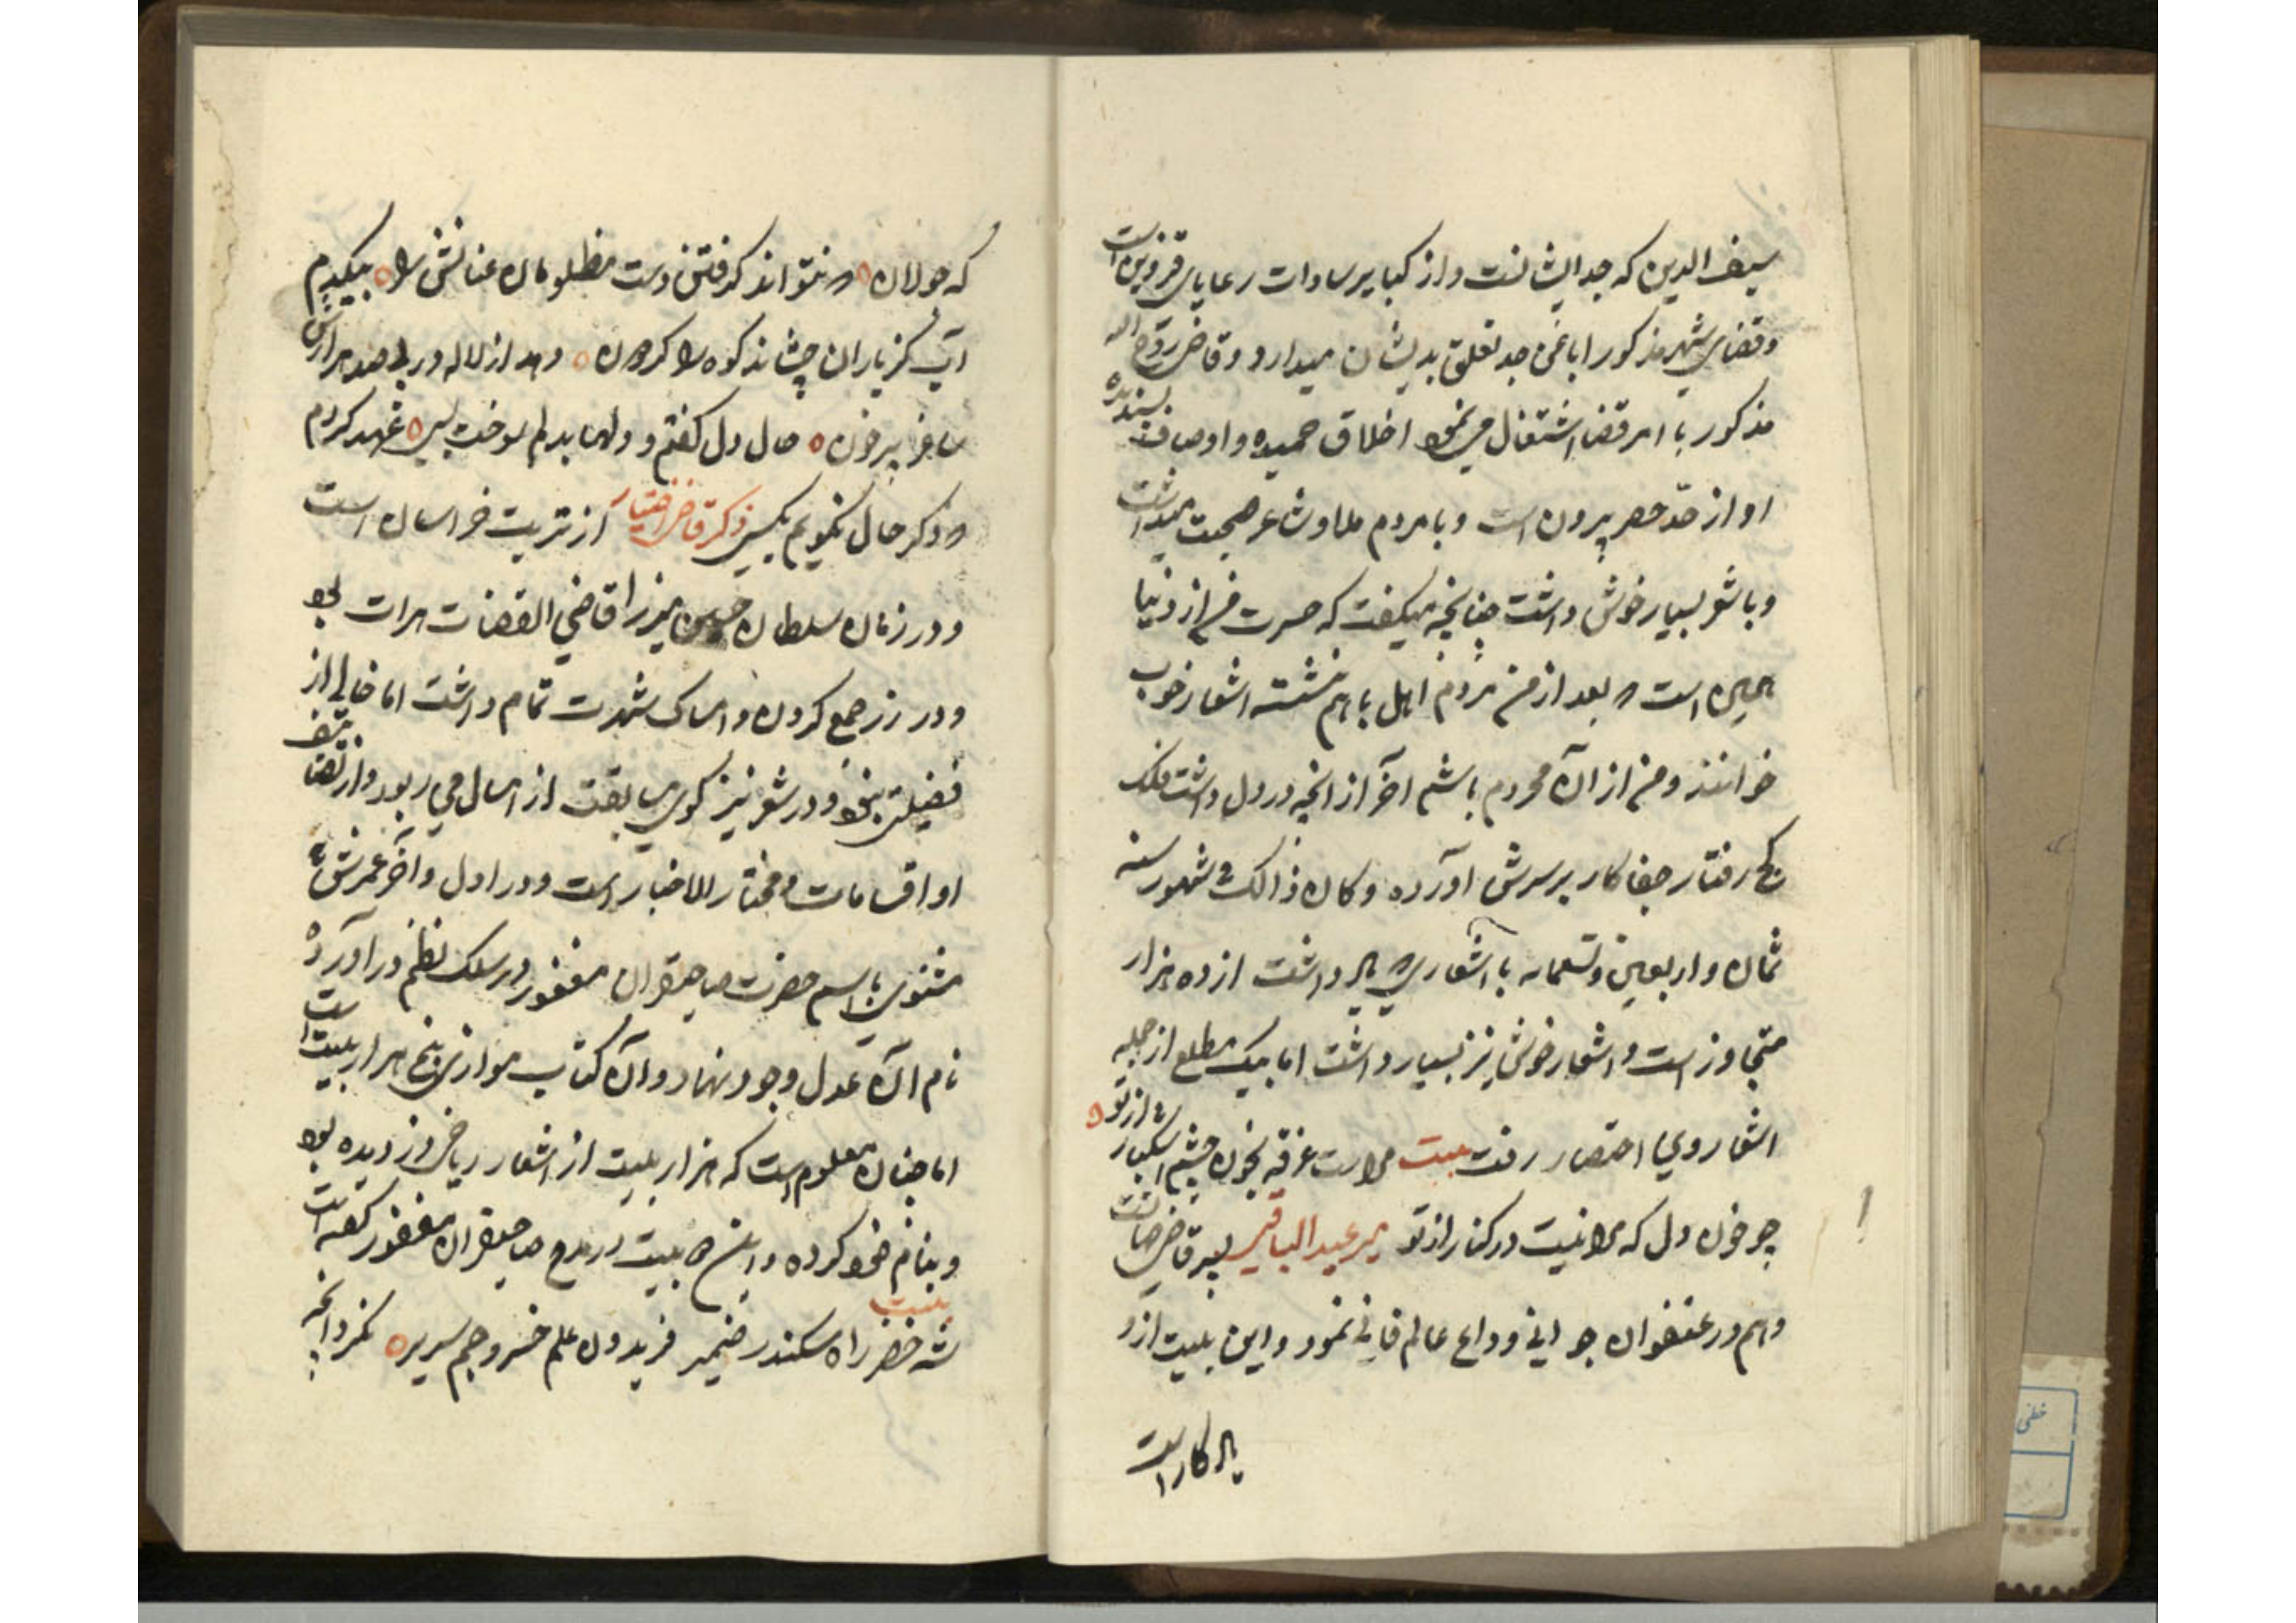 سیف الدین که جد ایشانست و از کبایر سادات رعایای قزوین است
و قضای شهر مذکور اباعن جد تعلق بدیشان میدارد و قاضی روح الله
مذکور با امر قضا اشتغال می نمود اخلاق حمیده و اوصاف پسندیده
او از حد حصر بیرون است و با مردم ملا و شاعر صحبت میداشت
و با شعر بسیار خوش داشت چنانچه میگفت که حسرت من از دنیا
همین است که بعد از من مردم اهل با هم نشسته اشعار خوب
خوانند و من از آن محروم باشم آخر از آنچه در دل داشت فلک
کج رفتار جفا کار بر سرش آورده و کان ذالک فی شهور سنه
ثمان و اربعین و تسعمایه با اشعاری که یاد داشت از ده هزار
متجاوز است و اشعار خوش نیز بسیار داشت اما بیک مطلع از جمله
اشعار وی اختصار رفت بیت مراست غرقه بخون چشم اشکبار از تو
چو خون دل که مرا نیست در کنار از تو میر عبد الباقی پسر قاضی
و هم در عنفوان جوانی وداع عالم فانی نمود و این بیت ازو
یاد کار است
که جولان نتواند گرفتن دست مظلومان عنانش را میکدم
آب کز باران چشاند کوه را کردون دهد از لاله در بی صد هزارش
ساغر پر خون حال دل گفتم و ولها بدلم سوخت بسی عهد کردم
که دکر حال نگویم بکسی ذکر قاضی اختیار از تربت خراسان است
و در زمان سلطان حسین میرزا قاضی القضات هرات بود
و در زر جمع کردن و امساک شهرت تمام داشت اما خالی از
فضیلتی نبود و در شعر نیز گوی سابقت از امثال می ربود و از تصانیف
او اقسامات و مختار الاخبار است و در اول و آخر عمرش
مثنوی باسم حضرت صاحبقران مغفور در سلک نظم در آورده
نام آن عدل وجود نهاد و آن کتاب موازی پنج هزار بیت است
اما چنان معلوم است که هزار بیت از اشعار ریاضی دزدیده بود
و بنام خود کرده و این بیت در مدح صاحبقران مغفور گفته است
بیت
شه خضر راه سکندر ضمیر فریدون علم خسرو جم سریر نکرد آنچه